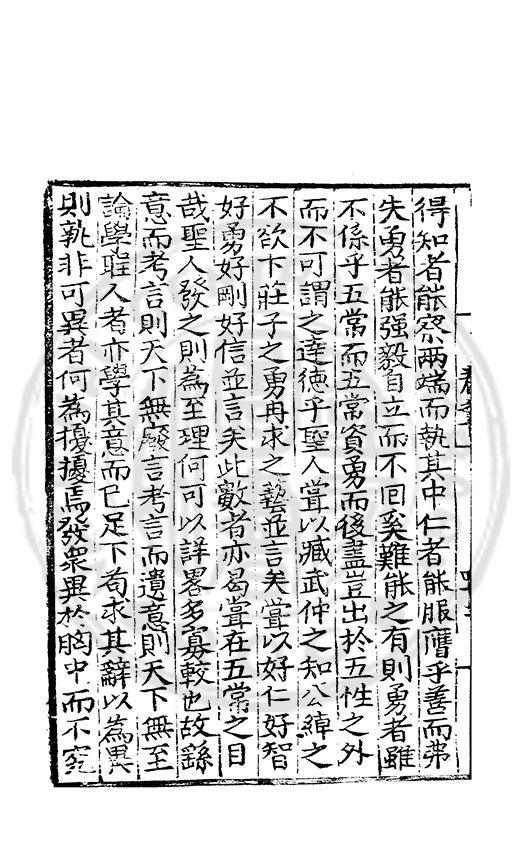 得知者能察兩端而執其中仁者能服膺乎善而弗
失勇者能强毅自立而不回奚難能之有則勇者雖
不係乎五常而五常資勇而後盡豈出於五性之外
而不可謂之達德乎聖人嘗以臧武仲之知公綽之
不欲卞莊子之勇冉求之藝並言矣嘗以好仁好智
好勇好剛好信並言矣此數者亦曷嘗在五常之目
哉聖人發之則為至理何可以詳畧多寡較也故繇
意而考言則天下無廢言考言而遺意則天下無至
論學聖人者亦學其意而已足下苟求其辭以為異
則孰非可異者何為擾擾焉發衆異於胸中而不究